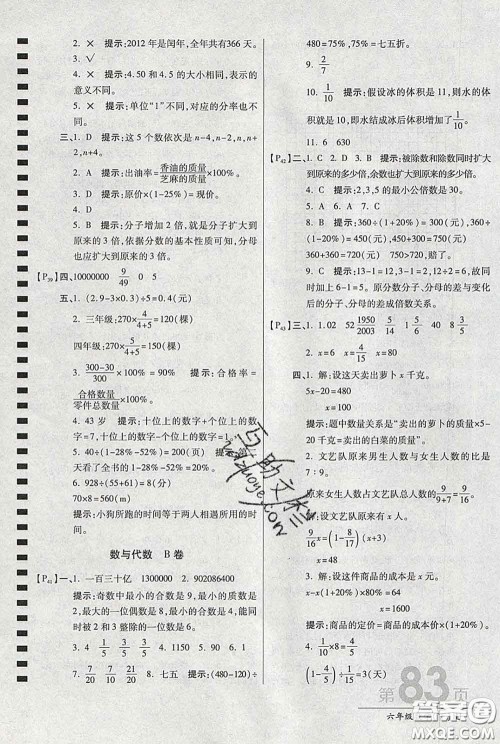 2. × 提示:2012年是闰年,全年共有366天。
3. √
4. × 提示:4.50和4.5大小相等,表示的
意义不同。
5. × 提示:单位“1”不同,对应的分率也不
同。
三、1. D 提示:这5个数依次是n-4,n-2,n,n+
2,n+4。
2. A 提示:出油率=香油的质量/芝麻的质量×100%。
3. D 提示:原价×(1-25%)=现价。
4. D
5. B 提示:分子增加2倍,就是分子扩大到
原来的3倍,依据分数的基本性质可知,分母
也应扩大到原来的3倍。
[P39]四、10000000 9/49 0 5
五、1. (2.9-3×0.3)÷0.4=5
2. 三年级:270×4/(4+5)=120(棵)
四年级:270×5/(4+5)=150(棵)
3. (300-30)/300×100%=90% 提示:合格率=
合格数量/零件总数量×100%。
4. 43岁 提示:十位上的数字+个位上的数
字=7,十位上的数字-个位上的数字=1。
5. 50×40%÷(1-90%)=200(页)
天看了全书的1-90%。
6. 928÷(55+61)=8(分)
70×8=560(m)
提示:小狗所跑的时间等于两人相遇所用的时
间。
数与代数 B卷
[P41]一、1. 一百三十亿 1300000 2. 902086400
提示:奇数中最小的合数是9,最小的质数是
2,最大的一位偶数是8,最小的合数是4,能同
时被2、3整除的一位数是6。
3. 4 4. 7/15 5. 2 90 6. 1
7. 7/20 7/10 21/20 8. 七五 提示:(480-120)÷
480=75%,75%=七五折。
9. 2/7
10. 1/10 提示:假设冰的体积是11,则水的体
积就是10,即水结成冰后体积增加
1/10。
11. 6 630
[P42]二、1. C 2. D 3. D 提示:被除数和除数同时扩大
到原来的多少倍,余数也扩大到原来的多少倍。
4. A 5. D 提示:2,3,5的最小公倍数是30。
6. B 7. D 8. B
提示:360÷(1+20%)=300(元)
360÷(1-20%)=450(元)
300+450>360+360,所以赔了。
9. C 提示:13-1=12,3-1=2,12÷2=6,同时加
上6-1=5。原分数分子、分母的差与变化
后的分子、分母的差成倍数关系。
[P43]三、1. 1.02 52 1950/2003 14/15 1 40 8 3/4
2. x=6 x=2 x=3
四、1. 解:设这天卖出萝卜x千克。
5x-20=480
x=100
提示:题中数量关系是“卖出的萝卜的质量×5-
20千克=卖出的白菜的质量”。
2. 文艺队原来男生人数与女生人数的比是
7:9。
原来女生人数占文艺队总人数的
设文艺队原来有x人。
3. 解:设这件商品的成本是x元。
x=1600
提示:商品的定价=商品的成本×(1+20%)。
4. 1/10×8=4/5
(1-4/5)÷3/10=2/3(天)
第83页
六年级
答案圈
MXQE.COM